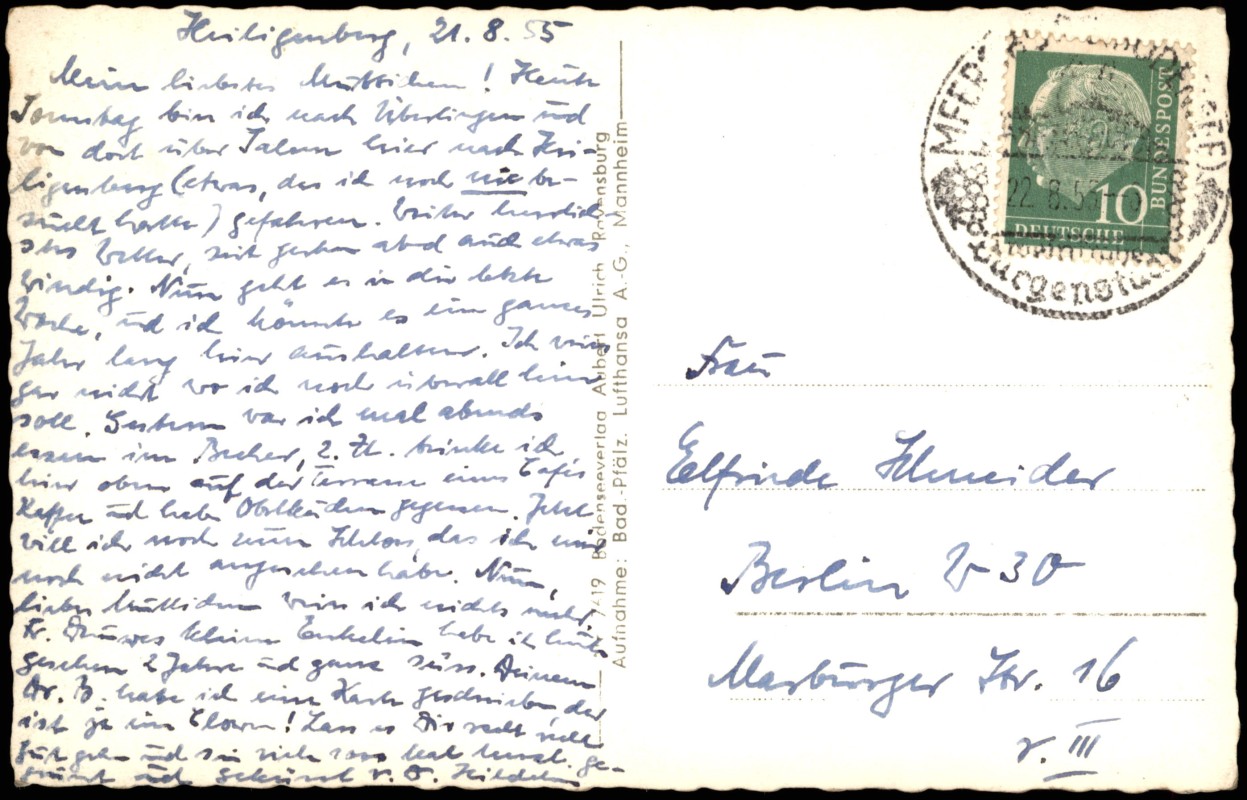 Heiligenberg, 21. 8. 55
Mein liebstes Muttichen! Heute
Sonntag bin ich nach Überlingen und
von dort über Salem hier nach Hei-
ligenberg (etwas, das ich noch nie be-
sucht hatte) gefahren. Weiter herrlich-
stes Wetter, seit gestern abd auch etwas
windig. Nun geht es in die letzte
Woche, und ich könnte es ein ganzes
Jahr lang hier aushalten. Ich weiss
gar nicht wo ich noch überall hin
soll. Gestern war ich mal abends
essen im Becher, z. Zt. trinke ich
hier oben auf der Terrasse eines Cafés
Kaffee und habe Obstkuchen gegessen. Jetzt
will ich noch zum Schloss, das ich mir
noch nicht angesehen habe. Nun,
liebes Muttichen weiss ich nichts mehr.
Fr. kleine Enkelin habe ich heute
gesehen 2 Jahre und ganz süss. Deinem
Dr. B. habe ich eine Karte geschrieben, der
ist ja ein Clown! Lass es Dir recht recht
gut gehen und sei viele 1000 Mal herzl. ge-
grüsst und geküsst v. D. Hildchen
7419 Bodenseeverlag Aubert Ulrich Ravensburg
Aufnahme: Bad.-Pfälz. Lufthansa A.-G., Mannheim
MEERSBURG (BODENSEE)
22. 8. 55
10
BUNDESPOST
DEUTSCHE
Frau
Elfriede Schneider
Berlin W 30
Marburger Str. 16
v. III